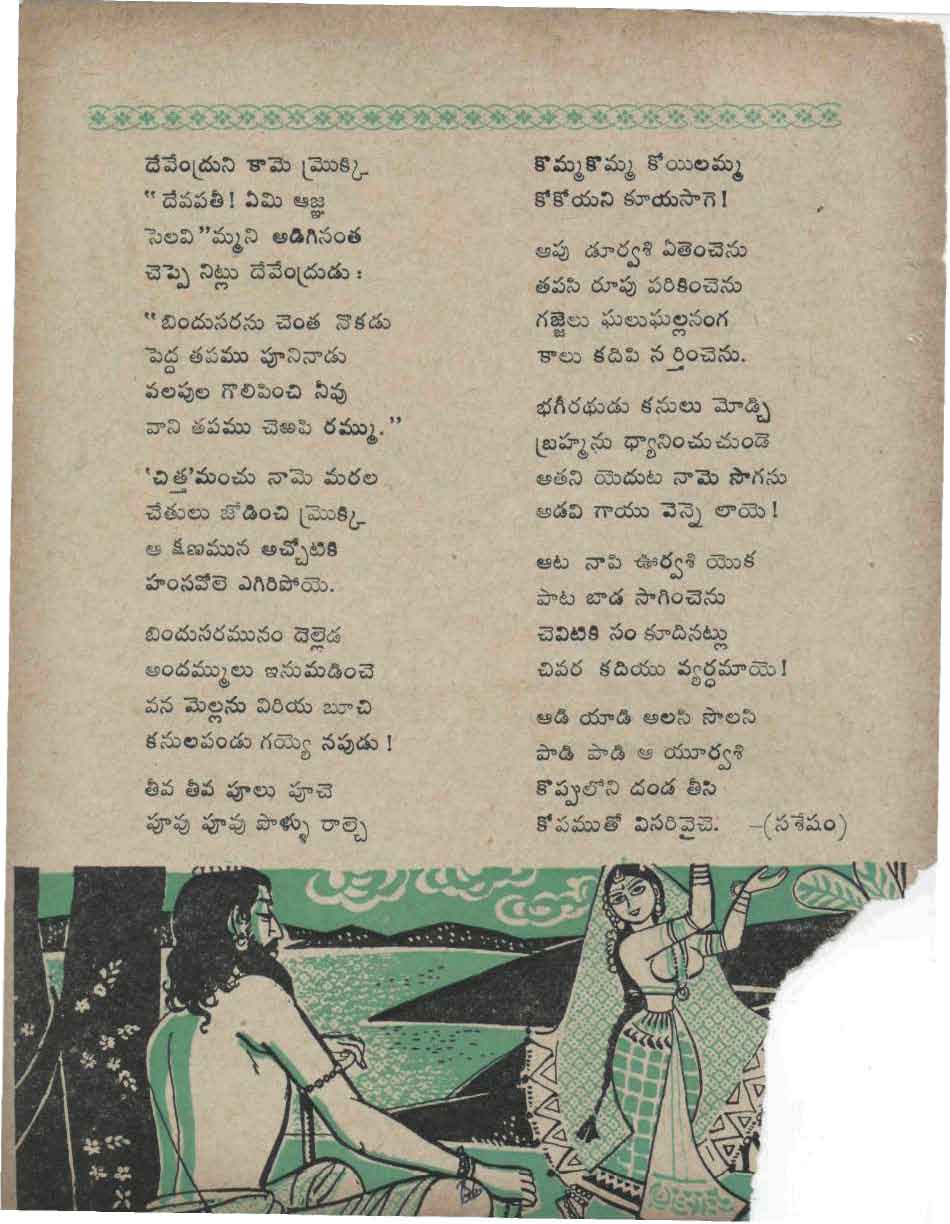 దేవేంద్రుని కామె మ్రొక్కి
“ దేవపతీ! ఏమి ఆజ్ఞ
సెలవి”మ్మని అడిగినంత
చెప్పె నిట్లు దేవేంద్రుడు :
“బిందుసరను చెంత నొకడు
పెద్ద తపము పూనినాడు
వలపుల గొలిపించి నీవు
వాని తపము చెఱపి రమ్ము.”
‘చిత్త’మంచు నామె మరల
చేతులు జోడించి మ్రొక్కి
ఆ క్షణమున అచ్చోటికి
హంసవోలె ఎగిరిపోయె.
బిందుసరమునం దెల్లెడ
అందమ్ములు ఇనుమడించె
వన మెల్లను విరియ బూచి
కనులపండు గయ్యె నపుడు !
తీవ తీవ పూలు పూచె
పూవు పూవు పొళ్ళు రాల్చె
కొమ్మకొమ్మ కోయిలమ్మ
కోకోయని కూయసాగె!
ఆపు డూర్వశి ఏతెంచెను
తపసి రూపు పరికించెను
గజ్జెలు ఘలుఘల్లనంగ
కాలు కదిపి నర్తించెను.
భగీరథుడు కనులు మోడ్చి
బ్రహ్మను ధ్యానించుచుండె
అతని యెదుట నామె సొగసు
అడవి గాయు వెన్నె లాయె!
ఆట నాపి ఊర్వశి యొక
పాట బాడ సాగించెను
చెవిటికి సం కూదినట్లు
చివర కదియు వ్యర్ధమాయె!
ఆడి యాడి అలసి సొలసి
పాడి పాడి ఆ యూర్వశి
కొప్పులోని దండ తీసి
కోపముతో విసరివైచె. —(సశేషం)